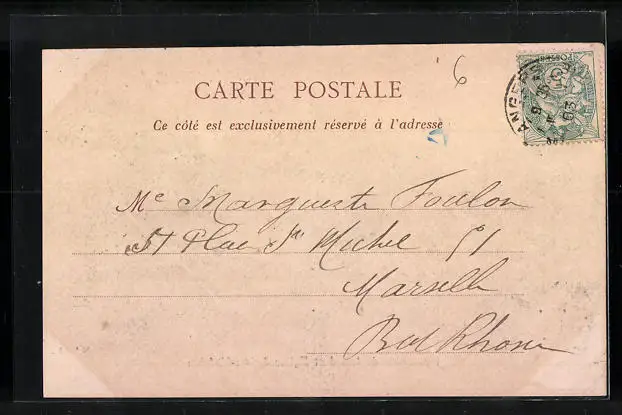 6
CARTE POSTALE
Ce côté est exclusivement réservé à l'adresse
POSTES
ANGERS
Me Marguerite Foulon
51 Place St Michel 51
Marseille
Bch Rhone